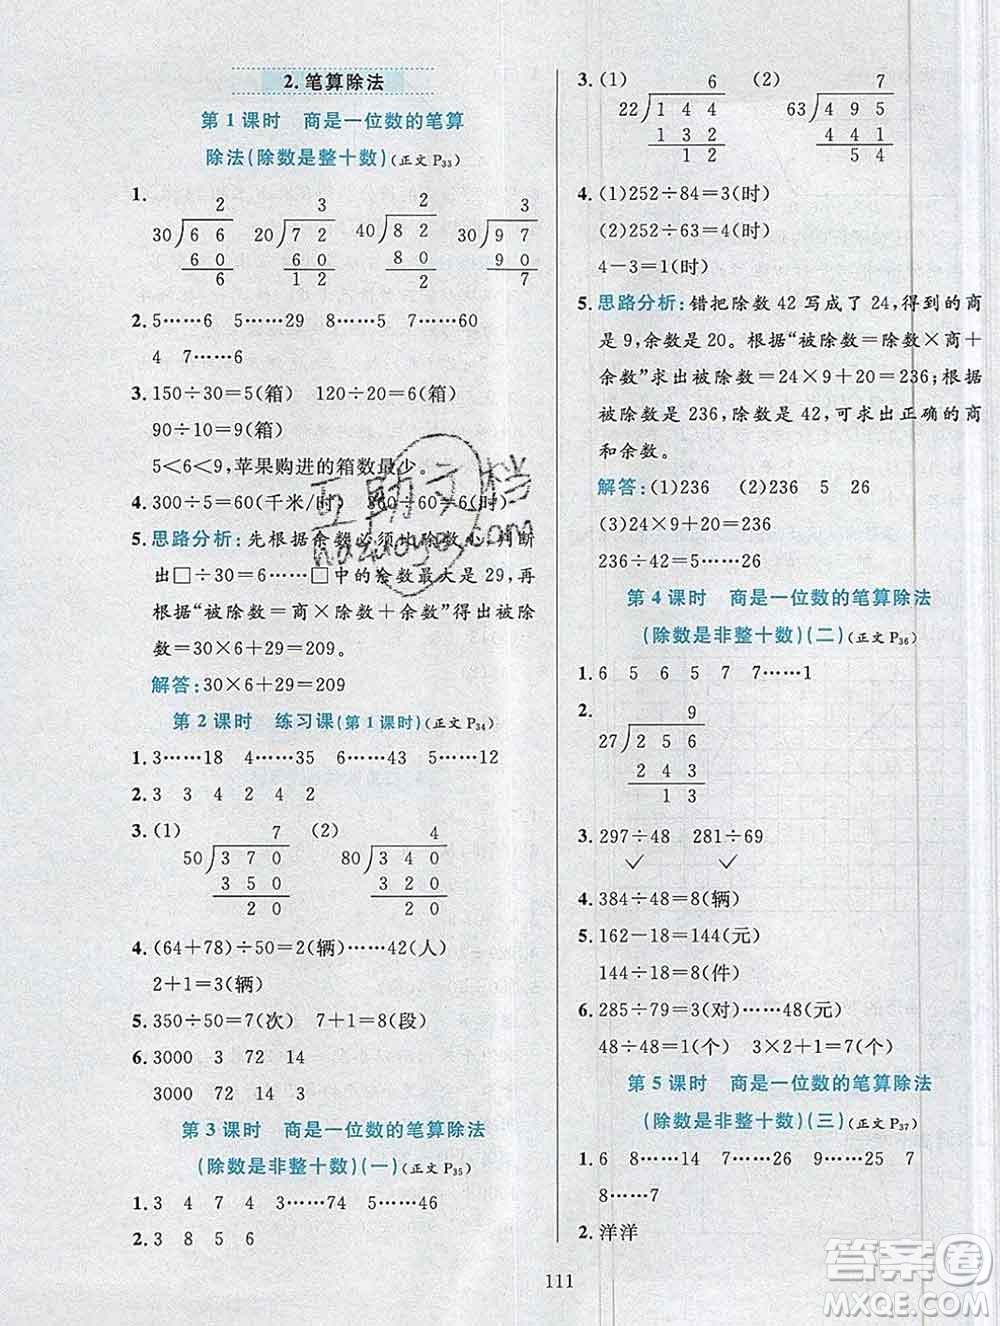 2. 笔算除法
第 1 课时　商是一位数的笔算
除法(除数是整十数)(正文 P33)
1.
2 3 2 3
30 6 6 20 7 2 40 8 2 30 9 7
6 0 6 0 8 0 9 0
6 1 2 2 7
2. 5……6 5……29 8……4 7……60
4 7……6
3. 150÷30=5(箱) 120÷20=6(箱)
90÷10=9(箱)
5<6<9,苹果购进的箱数最少。
4. 300÷5=60(千米/时) 360÷60=6(时)
5. 思路分析:先根据余数必须比除数小,判断
出□÷30=6……□中的余数最大是 29,再
根据“被除数=商×除数+余数”得出被除
数=30×6+29=209。
解答:30×6+29=209
第 2 课时　练习课(第 1 课时)(正文 P34)
1. 3……18 4……35 6……43 5……12
2. 3 3 4 2 4 2
3. (1) 7 (2) 4
50 3 7 0 80 3 4 0
3 5 0 3 2 0
2 0 2 0
4. (64+78)÷50=2(辆)……42(人)
2+1=3(辆)
5. 350÷50=7(次) 7+1=8(段)
6. 3000 3 72 14
3000 72 14 3
第 3 课时　商是一位数的笔算除法
(除数是非整十数)(一)(正文 P35)
1. 3 4 7 4 3……4 5……46
2. 3 8 5 6
3. (1) 6 (2) 7
22 1 4 4 63 4 9 5
1 3 2 4 4 1
1 2 5 4
4. (1)252÷84=3(时)
(2)252÷63=4(时)
4-3=1(时)
5. 思路分析:错把除数 42 写成了 24,得到的商
是 9,余数是 20。根据“被除数=除数×商+
余数”求出被除数=24×9+20=236;根据
被除数是 236,除数是 42,可求出正确的商
和余数。
解答:(1)236 (2)236 5 26
(3)24×9+20=236
236÷42=5……26
第 4 课时　商是一位数的笔算除法
(除数是非整十数)(二)(正文 P36)
1. 6 5 6 5 7 7……1
2.
9
27 2 5 6
2 4 3
1 3
3. 297÷48 281÷69
✓ ✓
4. 384÷48=8(辆)
5. 162-18=144(元)
144÷18=8(件)
6. 285÷79=3(对)……48(元)
48÷48=1(个) 3×2+1=7(个)
第 5 课时　商是一位数的笔算除法
(除数是非整十数)(三)(正文 P37)
1. 6 8……14 7……27 9……25 7
8……7
2. 洋洋
111
互助文档
hazuoya.com
答案圈
MXQE.COM